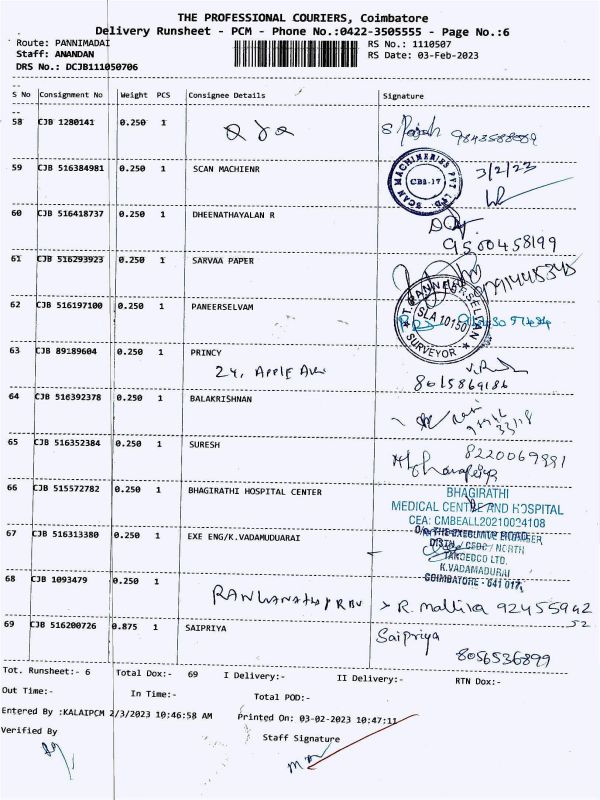 THE PROFESSIONAL COURIERS, Coimbatore
Delivery Runsheet - PCM - Phone No.:0422-3505555 - Page No.:6
Route: PANNIMADAI RS No.: 1110507
Staff: ANANDAN RS Date: 03-Feb-2023
DRS No.: DCJB111050706
S No Consignment No Weight PCS Consignee Details Signature
58 CJB 1280141 0.250 1
59 CJB 516384981 0.250 1 SCAN MACHIENR SCAN MACHINERIES PVT LTD. CBE-17 3/2/23
60 CJB 516418737 0.250 1 DHEENATHAYALAN R
9500458199
61 CJB 516293923 0.250 1 SARVAA PAPER
62 CJB 516197100 0.250 1 PANEERSELVAM T. PANNEERSELVAN SLA 10150 SURVEYOR
63 CJB 89189604 0.250 1 PRINCY
24, APPLE Ave 8015869186
64 CJB 516392378 0.250 1 BALAKRISHNAN
65 CJB 516352384 0.250 1 SURESH 8220069991
66 CJB 515572782 0.250 1 BHAGIRATHI HOSPITAL CENTER BHAGIRATHI
MEDICAL CENTRE AND HOSPITAL
CEA: CMBEALL20210024108
67 CJB 516313380 0.250 1 EXE ENG/K.VADAMUDUARAI O/o THE EXECUTIVE ENGINEER
DISTN / CEDC / NORTH
TANGEDCO LTD,
K.VADAMADURAI
COIMBATORE - 641 017,
68 CJB 1093479 0.250 1 R. mallika 92455942
52
69 CJB 516200726 0.875 1 SAIPRIYA Saipriya
8056536899
Tot. Runsheet:- 6 Total Dox:- 69 I Delivery:- II Delivery:- RTN Dox:-
Out Time:- In Time:- Total POD:-
Entered By :KALAIPCM 2/3/2023 10:46:58 AM Printed On: 03-02-2023 10:47:11
Verified By Staff Signature